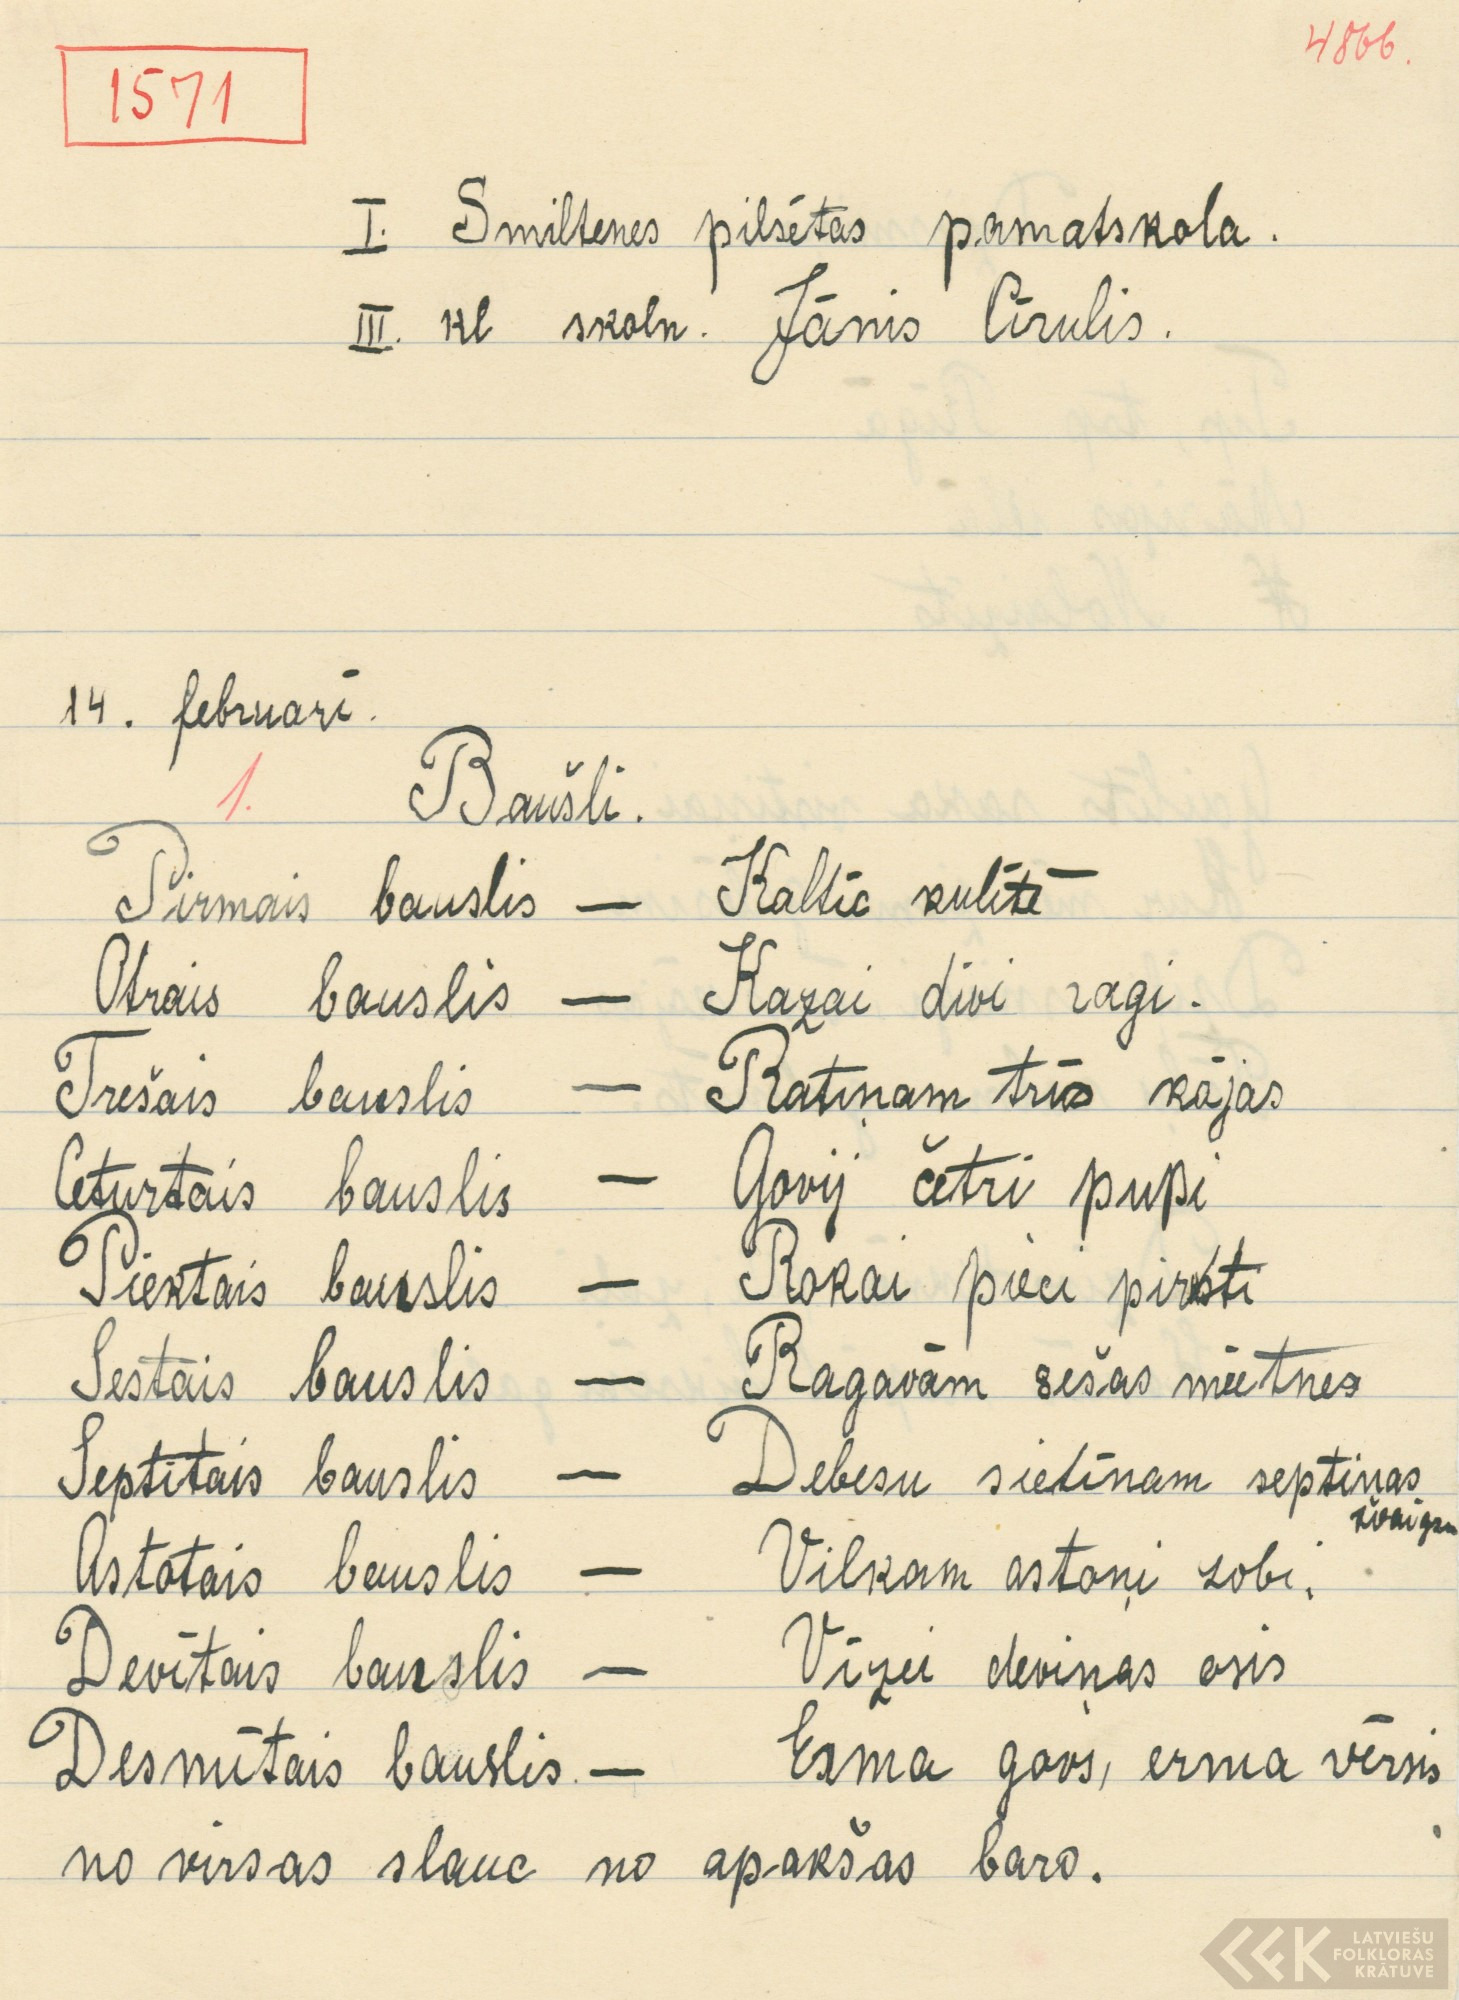 1571
4866.
I. Smiltenes pilsētas pamatskola.
III. kl skoln. Jānis Cīrulis.
14. februarī.
1. Baušli.
Pirmais bauslis — Kaltīc kulītē
Otrais bauslis — Kazai divi ragi.
Trešais bauslis — Ratiņam trīs kājas
Ceturtais bauslis — Govij četri pupi
Piektais bauslis — Rokai pieci pirksti
Sestais bauslis — Ragavām sešas mietnes
Septītais bauslis — Debesu sietiņam septiņas
Astotais bauslis — Vilkam astoņi zobi.
Devītais bauslis — Vīzei deviņas osis
Desmitais bauslis. — Erma govs, erma vērsis
no virsas slauc no apakšas baro.
LATVIEŠU
FOLKLORAS
KRĀTUVE